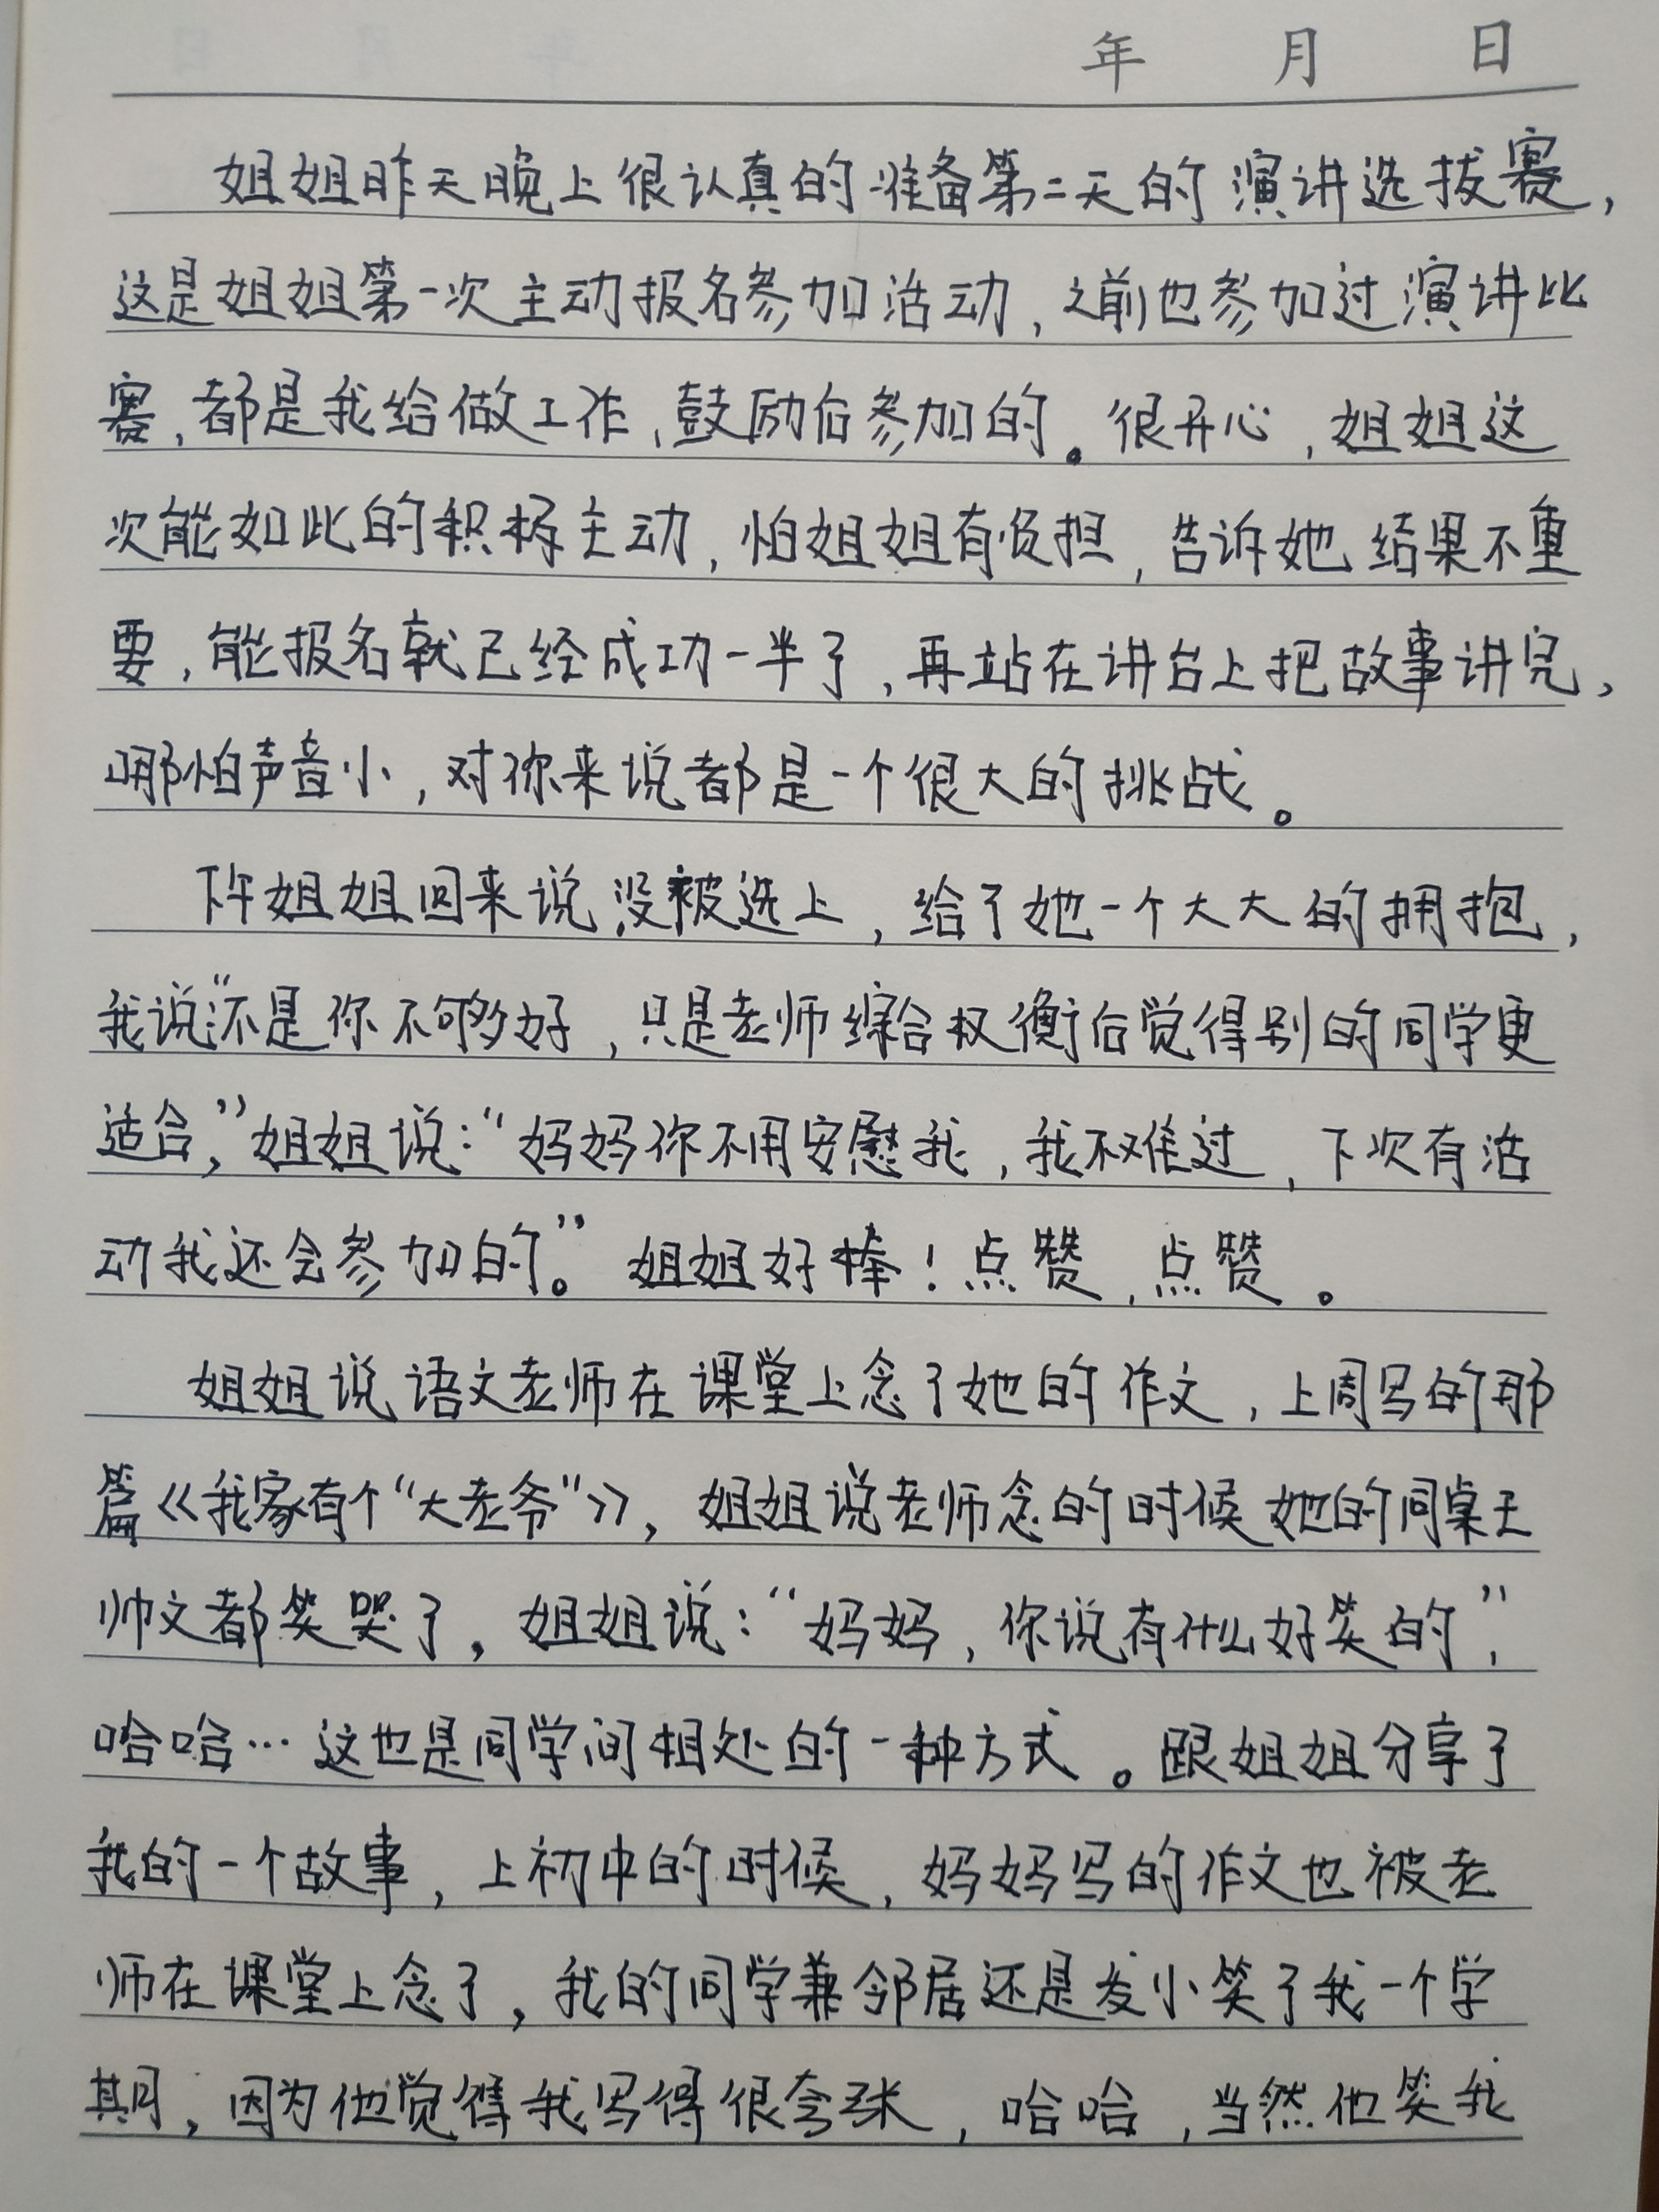 年 月 日
姐姐昨天晚上很认真的准备第二天的演讲选拔赛，
这是姐姐第一次主动报名参加活动，之前也参加过演讲比
赛，都是我给做工作，鼓励后参加的。很开心，姐姐这
次能如此的积极主动，怕姐姐有负担，告诉她结果不重
要，能报名就已经成功一半了，再站在讲台上把故事讲完，
哪怕声音小，对你来说都是一个很大的挑战。
下午姐姐回来说没被选上，给了她一个大大的拥抱，
我说：“不是你不够好，只是老师综合权衡后觉得别的同学更
适合，”姐姐说：“妈妈你不用安慰我，我不难过，下次有活
动我还会参加的。”姐姐好棒！点赞，点赞。
姐姐说语文老师在课堂上念了她的作文，上周写的那
篇《我家有个“大老爷”》，姐姐说老师念的时候她的同桌王
帅文都笑哭了，姐姐说：“妈妈，你说有什么好笑的”，
哈哈…这也是同学间相处的一种方式。跟姐姐分享了
我的一个故事，上初中的时候，妈妈写的作文也被老
师在课堂上念了，我的同学兼邻居还是发小笑了我一个学
期，因为他觉得我写得很夸张，哈哈，当然他笑我